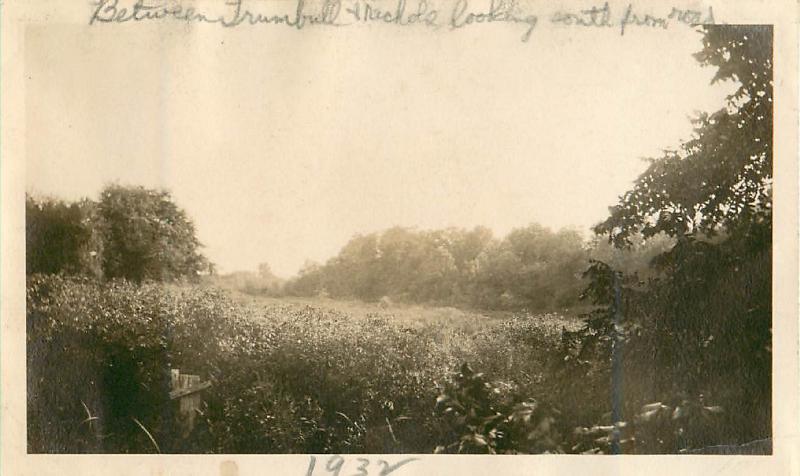 Between Trumbull & Nichols looking south from road
1932